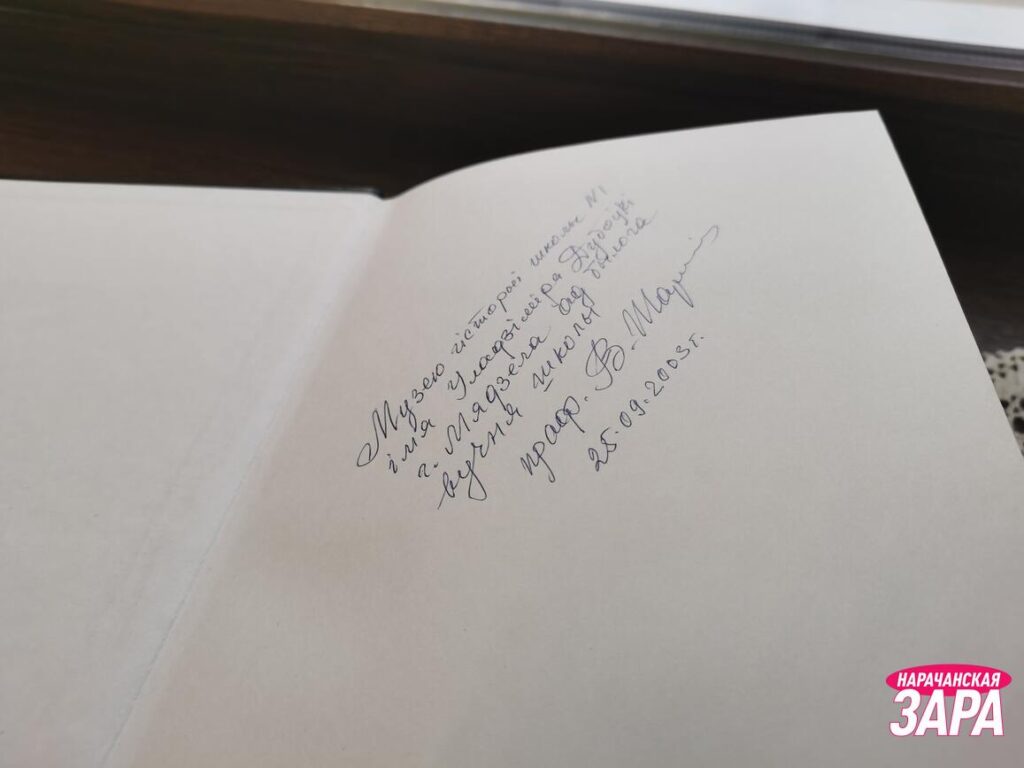 Музею гісторыі школы №1
імя Уладзіміра Дубоўкі
г. Мядзела ад былога
вучня школы
праф. В.
25.09.2003г.
НАРАЧАНСКАЯ
ЗАРА